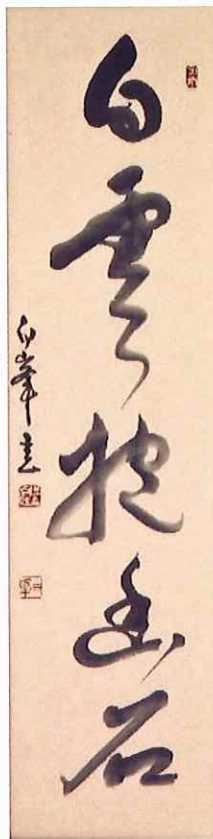 白雲抱幽石
白峯書